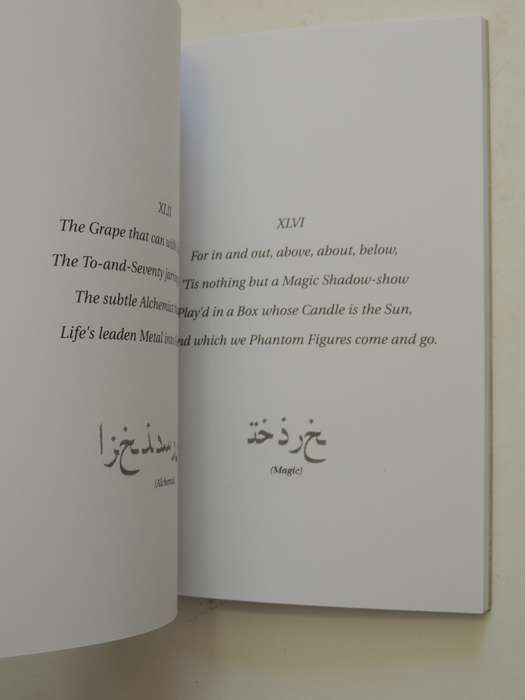 XLII
The Grape that can with
The To-and-Seventy jarring
The subtle Alchemist
Life's leaden Metal into
(Alchemist
XLVI
For in and out, above, about, below,
'Tis nothing but a Magic Shadow-show
Play'd in a Box whose Candle is the Sun,
nd which we Phantom Figures come and go.
خرذختـ
(Magic)